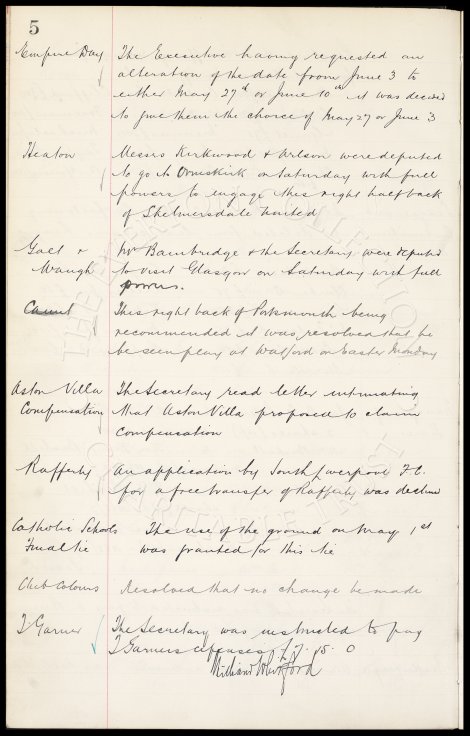 5
Empire Day The Executive having requested an
alteration of the date from June 3 to
either May 27th or June 10th it was decided
to give them the choice of May 27 or June 3
Heaton Messrs Kirkwood & Wilson were deputed
to go to Ormskirk on Saturday with full
powers to engage this right half back
of Skelmersdale United
Galt & Mr Bainbridge & the Secretary were deputed
Waugh to visit Glasgow on Saturday with full
powers.
This right back of Portsmouth being
recommended it was resolved that he
be seen play at Watford on Easter Monday
Aston Villa The Secretary read letter intimating
Compensation that Aston Villa proposed to claim
Compensation
Rafferty An application by South Liverpool F.C.
for a free transfer of Rafferty was declined
Catholic Schools The use of the ground on May 1st
Final tie was granted for this tie
Club Colours Resolved that no change be made
T Garner The Secretary was instructed to pay
T Garners expenses £7. 15. 0